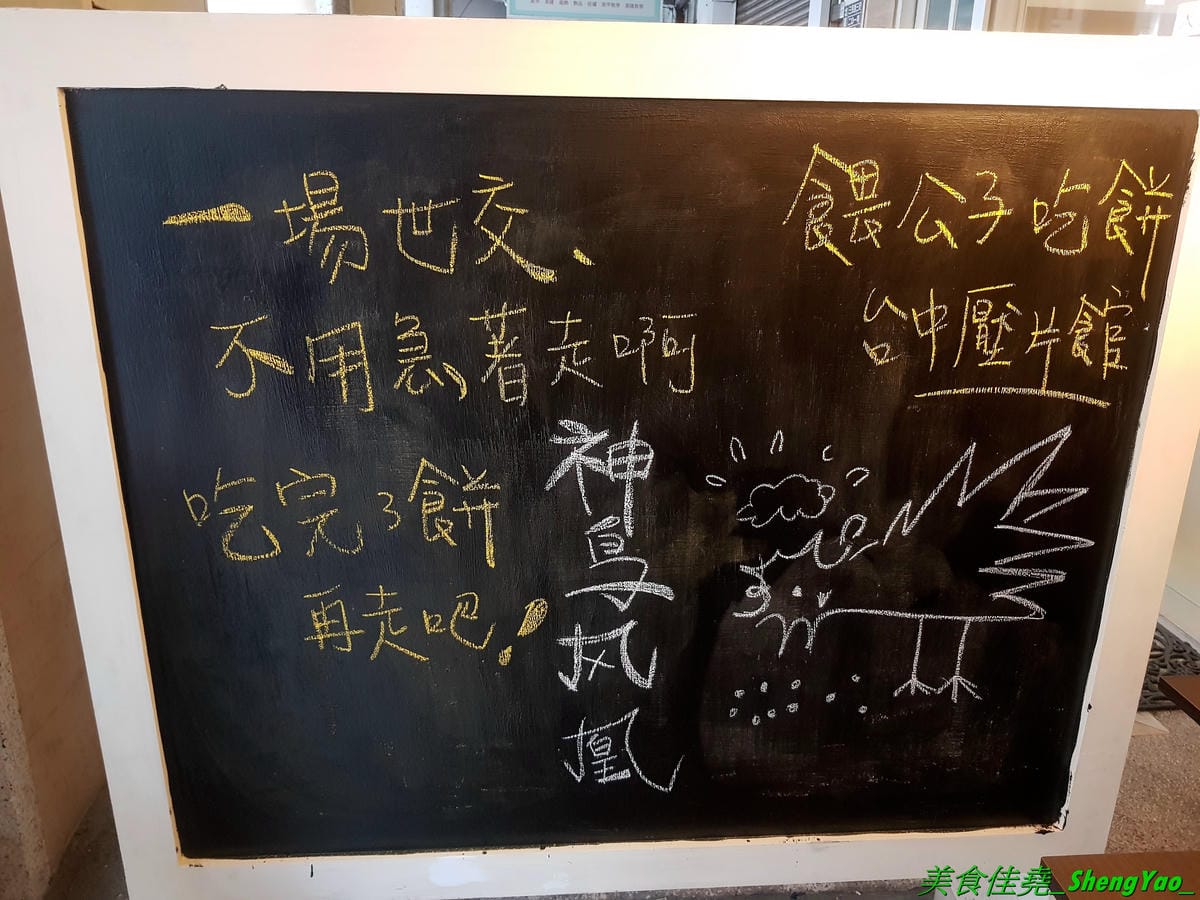 一場世交、
不用急著走啊
吃完了餅
再走吧!
餵公子吃餅
台中壓片館
神鳥风凰
美食佳堯_ShengYao_